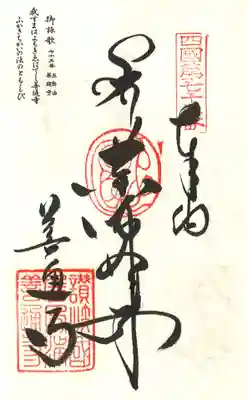 四國第七十五番
奉納
薬師如来
善通寺
讃岐國善通寺
御詠歌 七十五番 五岳山 善通寺
我すまばよもきえはてじ善通寺
ふかきちかいの法のともしび